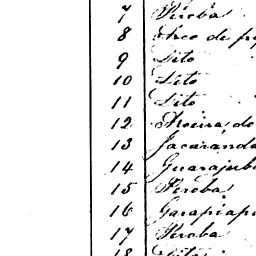 7 Peroba
8 Arco de pi
9 Dito
10 Dito
11 Dito
12 Aroeira do
13 Jacaranda
14 Guarajub
15 Peroba
16 Garapiap
17 Peroba
18 Dito